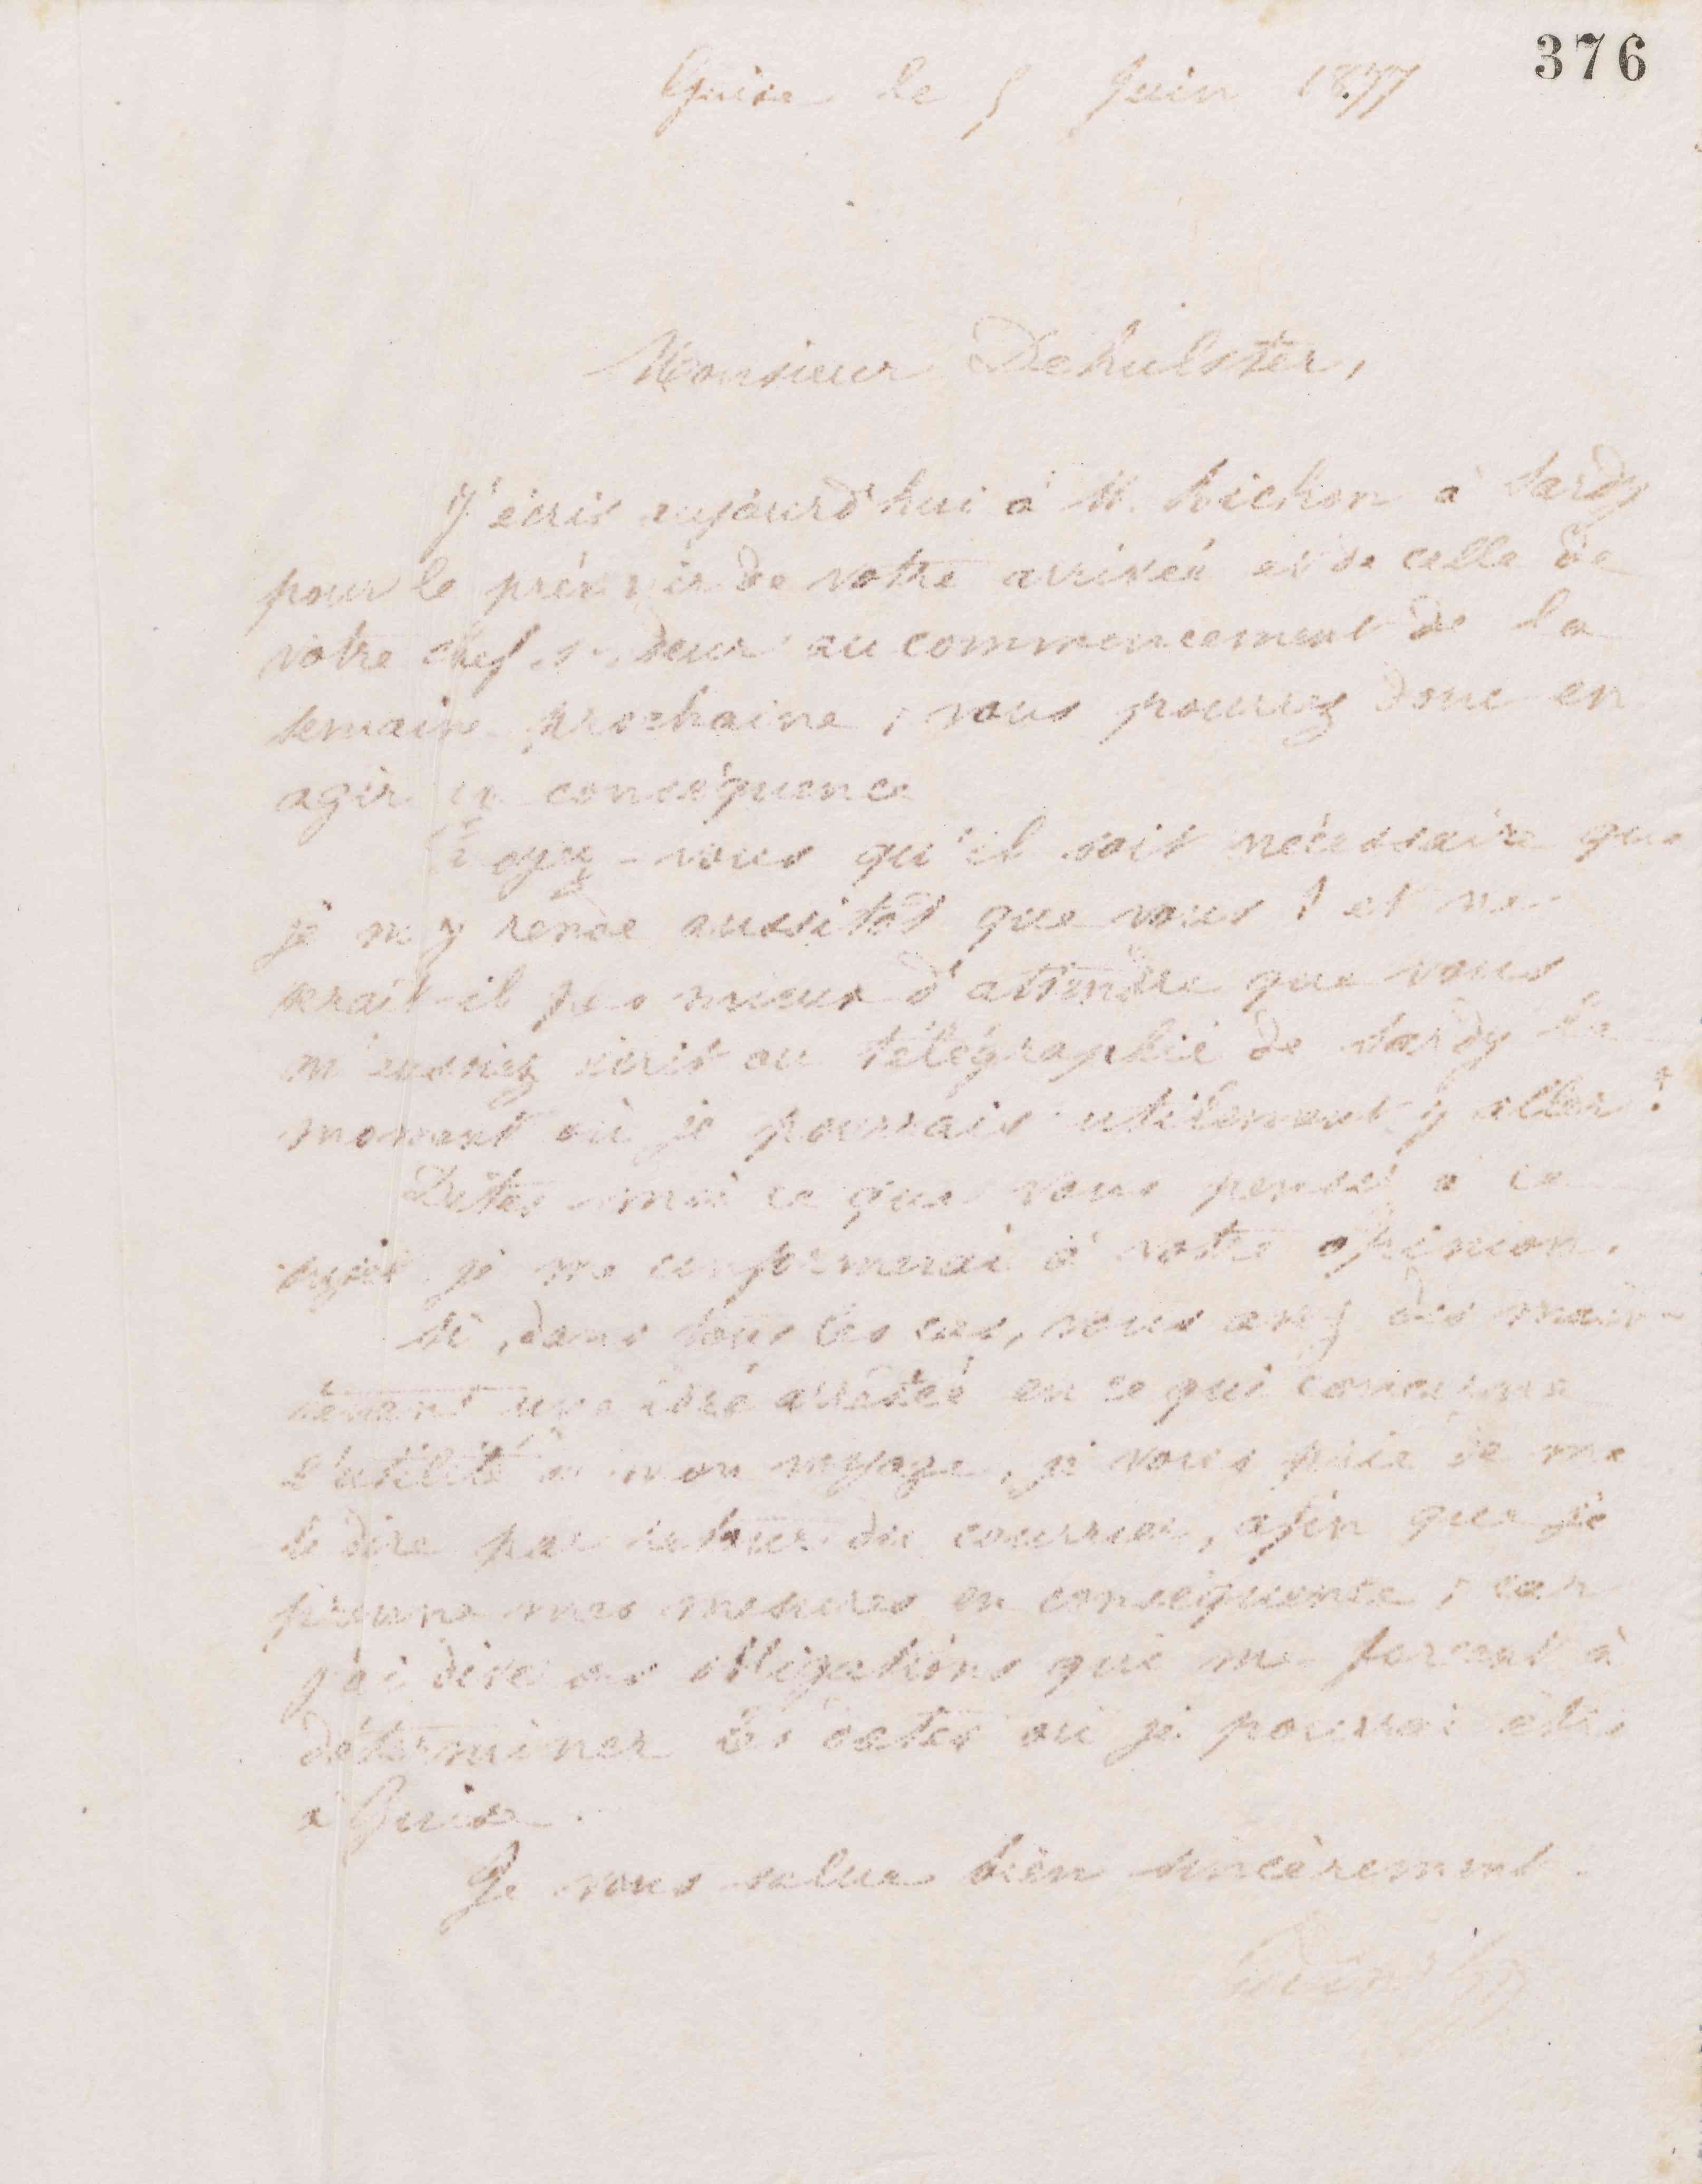 376
Guise le 5 Juin 1877
Monsieur Dehulster,
J'écris aujourd'hui à M. Pichon à Sardy
pour le prévenir de votre arrivée et de celle de
votre chef sondeur au commencement de la
semaine prochaine ; vous pourrez donc en
agir en conséquence
Croyez-vous qu'il soit nécessaire que
je m'y rende aussitôt que vous ? et ne
serait-il pas mieux d'attendre que vous
m'eussiez écrit ou télégraphié de Sardy le
moment où je pourrais utilement y aller ?
Dites-moi ce que vous pensez à ce
sujet je me conformerai à votre opinion.
Si, dans tous les cas, vous avez dès main-
tenant une idée arrêtée en ce qui concerne
l'utilité de mon voyage, je vous prie de me
le dire par retour du courrier, afin que je
prenne mes mesures en conséquence ; car
j'ai diverses obligations qui me forcent à
déterminer les dates où je pourrai être
à Guise.
Je vous salue bien sincèrement.
Godin